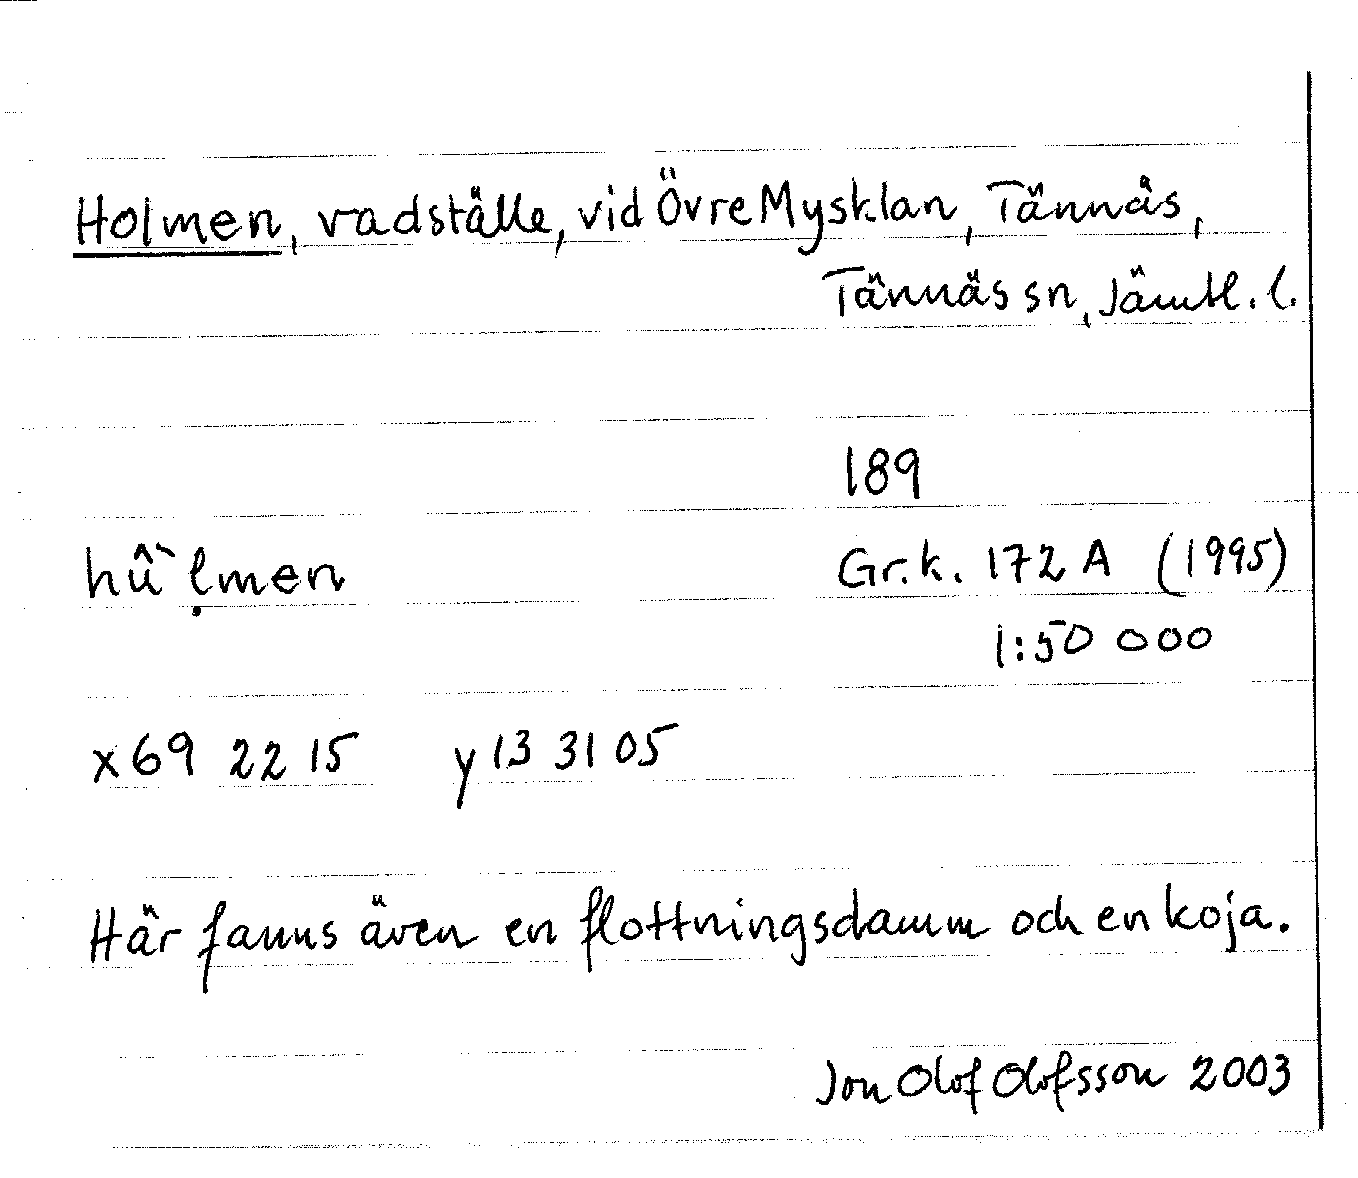 Holmen, vadställe, vid Övre Mysklan, Tännäs,
Tännäs sn, Jämtl. l.
189
hû`ḷmen Gr.k. 172 A (1995)
1:50 000
x 69 22 15 y 13 31 05
Här fanns även en flottningsdamm och en koja.
Jon Olof Olofsson 2003